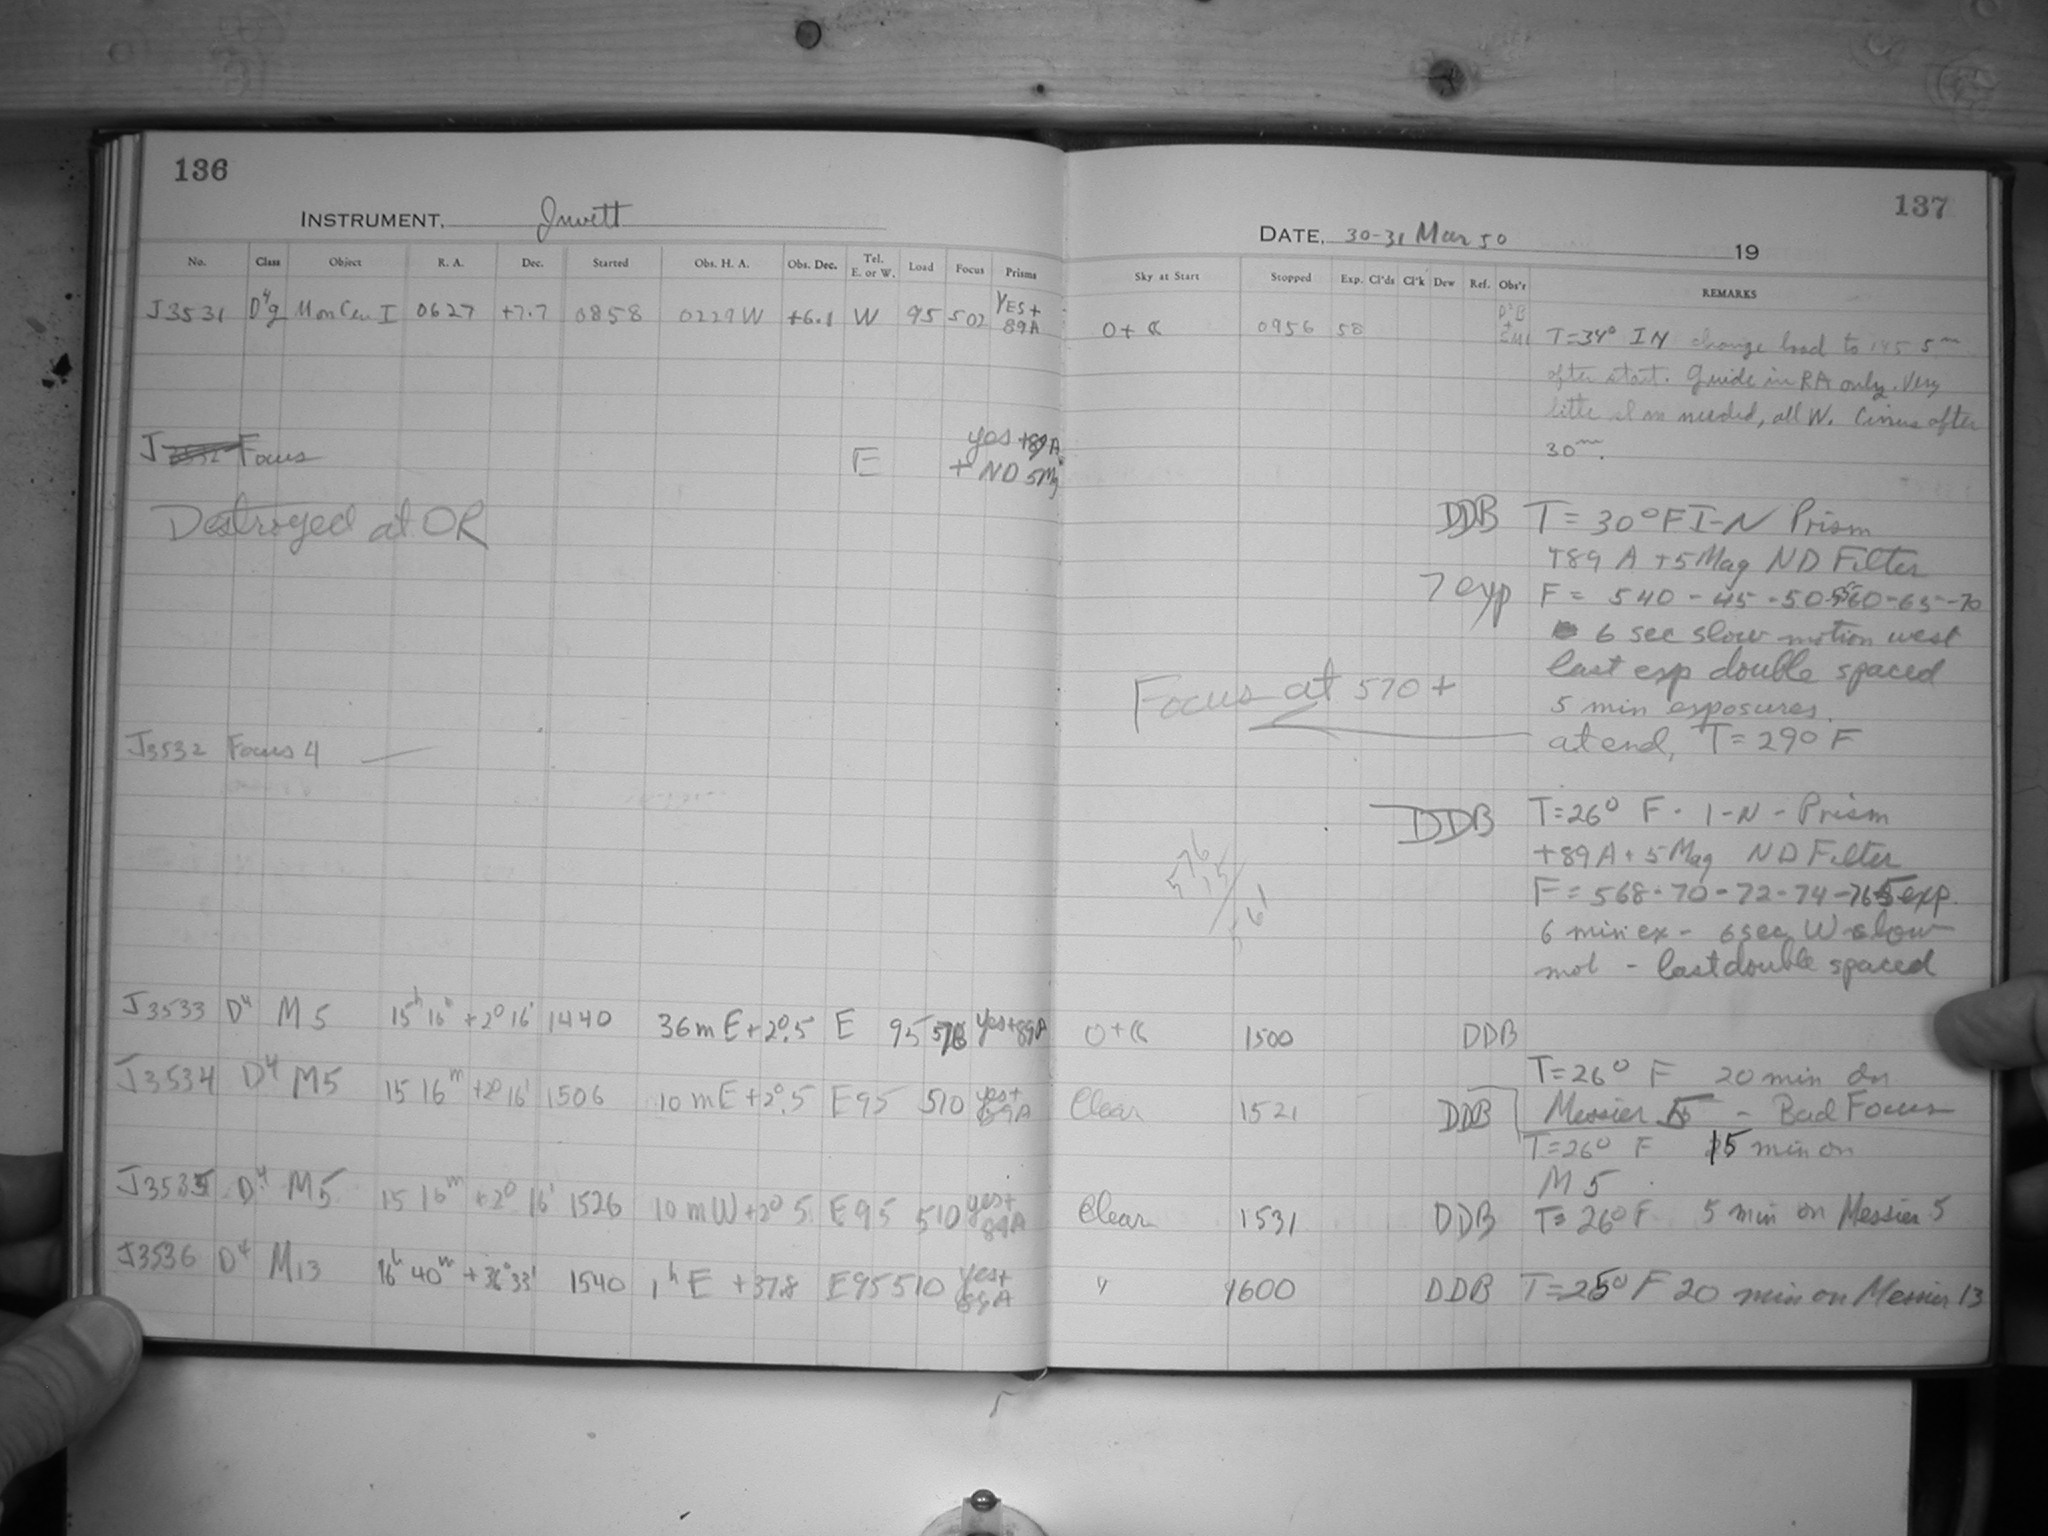 136
INSTRUMENT, Jewett
No. Class Object R. A. Dec. Started Obs. H. A. Obs. Dec. Tel. E. or W. Load Focus Prisms
J3531 D⁴g Mon Cen I 0627 +7.7 0858 0229W +6.1 W 95 502 YES + 89A
J Focus E yes +89A
+ ND 5Mg
Destroyed at OR
J3532 Focus 4 —
J3533 D⁴ M5 15ʰ16ᵐ +2°16' 1440 36m E +2°.5 E 95 576 yes+89A
J3534 D⁴ M5 15 16ᵐ +2° 16' 1506 10 m E +2°.5 E 95 510 yes+ 89A
J3535 D⁴ M5 15 16ᵐ +2° 16' 1526 10 m W +2° 5 E 95 510 yes+ 89A
J3536 D⁴ M13 16ʰ 40ᵐ +36°33' 1540 1ʰ E +37.8 E 95 510 yes+ 89A
137
DATE, 30-31 Mar 50 19
Sky at Start Stopped Exp. Cl'ds Cl'k Dew Ref. Obs'r REMARKS
0956 58 T=34° IN change load to 145 5ᵐ
after start. Guide in RA only. Very
little needed, all W. Cirrus after
30ᵐ.
DDB T = 30°F I-N Prism
+89 A +5 Mag ND Filter
7 exp F = 540 - 45 - 50-55-60-65-70
6 sec slow motion west
last exp double spaced
Focus at 570+
5 min exposures.
at end, T = 29° F
DDB T=26° F - I-N - Prism
+89A + 5 Mag ND Filter
576
15
561
F = 568-70-72-74-76 5 exp.
6 min ex - 6 sec W slow
mot - last double spaced
1500 DDB
T=26° F 20 min on
Messier 5 - Bad Focus
Clear 1521 DDB
T=26° F 15 min on
M 5
Clear 1531 DDB T= 26° F 5 min on Messier 5
" 1600 DDB T=25° F 20 min on Messier 13